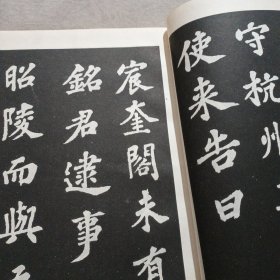 守杭州
使来告曰
宸奎閣未有
銘君逮事
昭陵而與